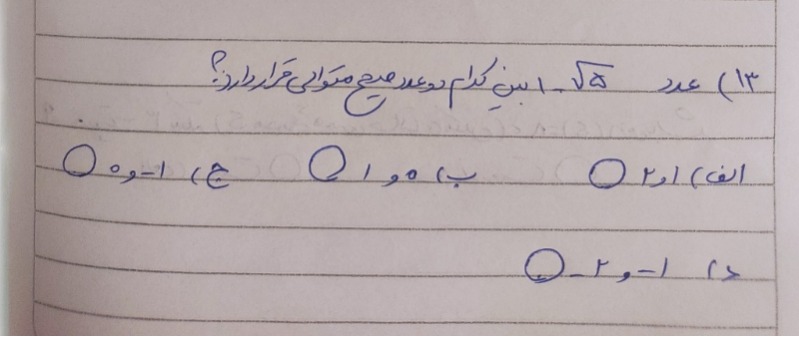 ۱۳) عدد √۵ - ۱ بین کدام دو عدد صحیح متوالی قرار دارد؟
الف) ۱ و ۲ ب) ۰ و ۱ ج) ۱- و ۰
د) ۱- و ۲-